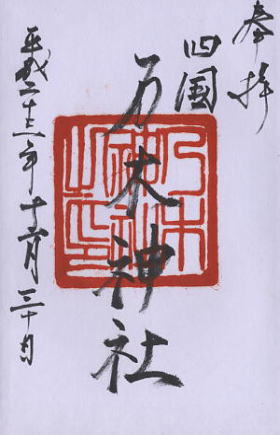 奉拝
四国
乃木神社
平成二十三年十二月三十日
乃木
神社
之印